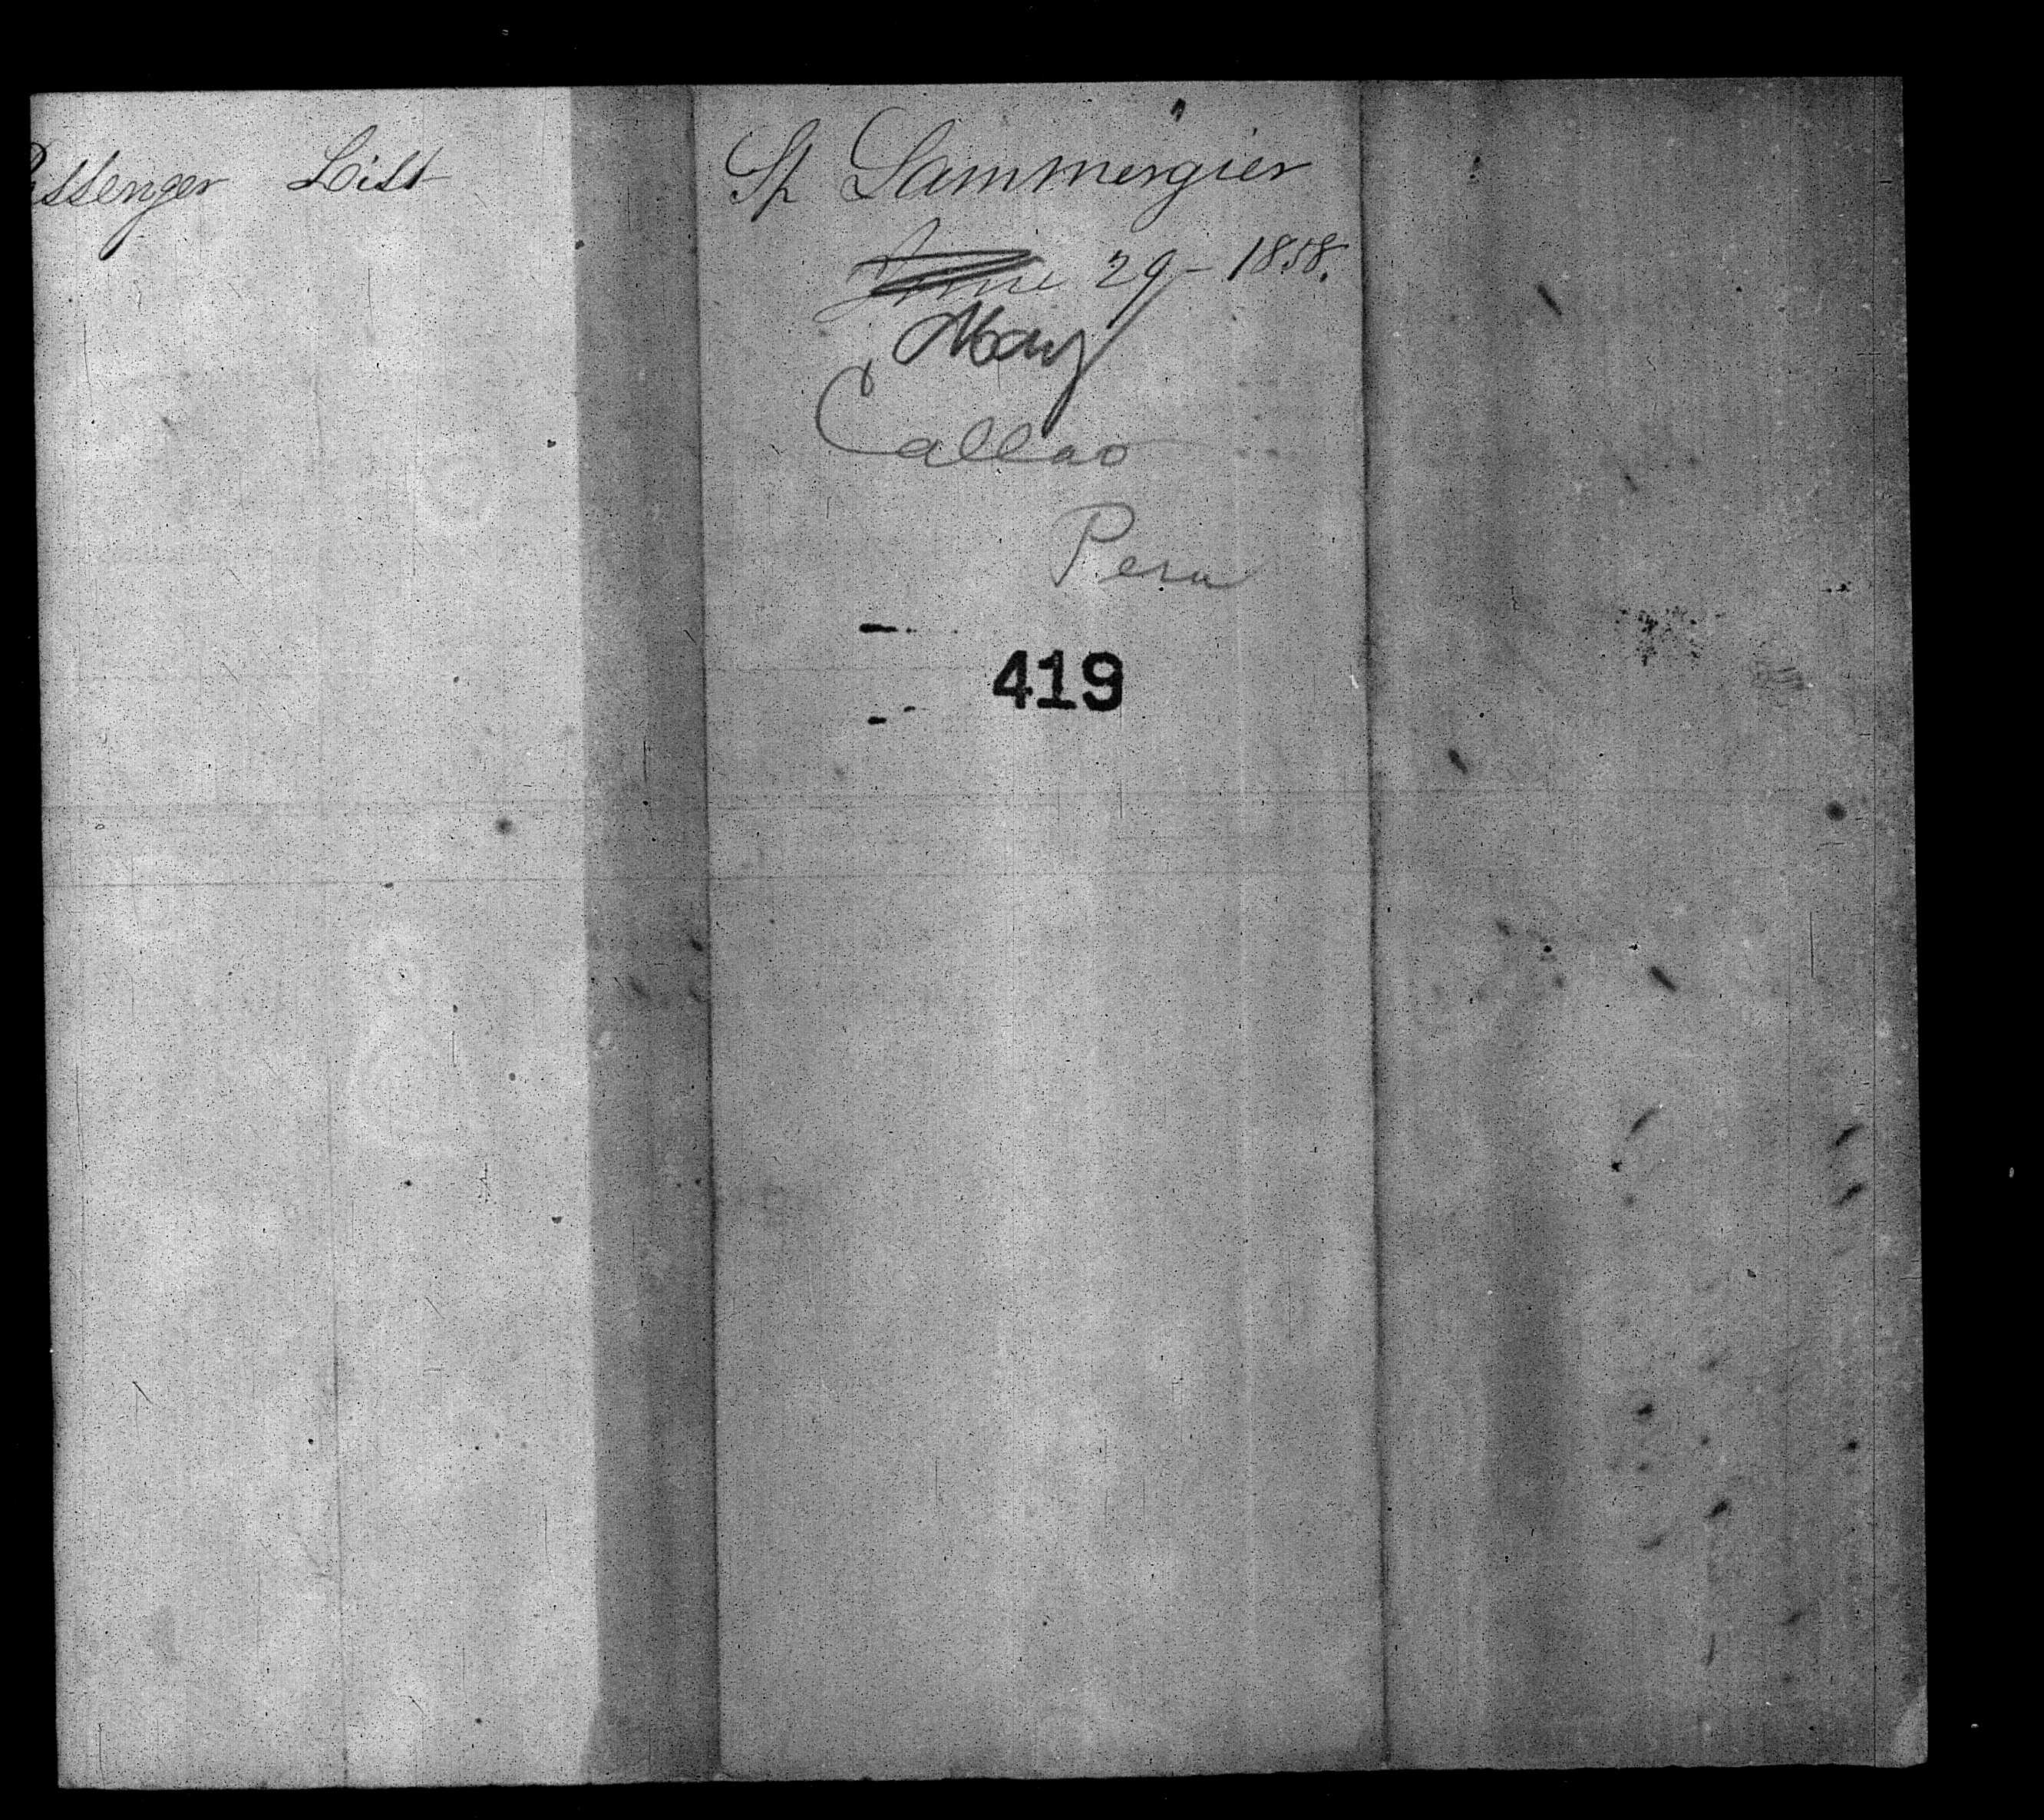 Passenger List
Sp Lammergier
June 29 - 1858.
May
Callao
Peru
419